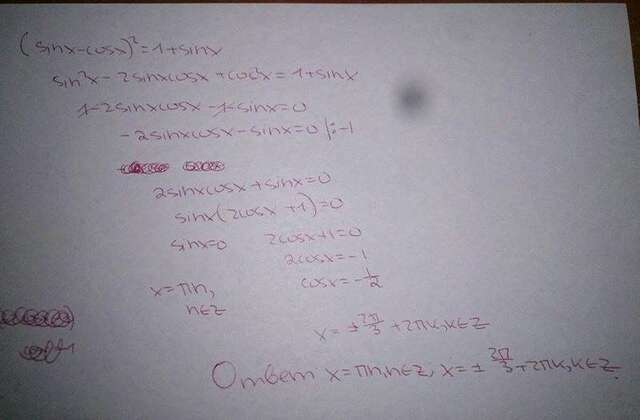 (sinx-cosx)²=1+sinx
sin²x-2sinxcosx+cos²x=1+sinx
1-2sinxcosx-1-sinx=0
-2sinxcosx-sinx=0 |:-1
2sinxcosx+sinx=0
sinx(2cosx+1)=0
sinx=0 2cosx+1=0
2cosx=-1
x=πn, cosx=-1/2
n∈Z
x=±2π/3+2πk,k∈Z
Ответ x=πn,n∈Z, x=±2π/3+2πk,k∈Z.